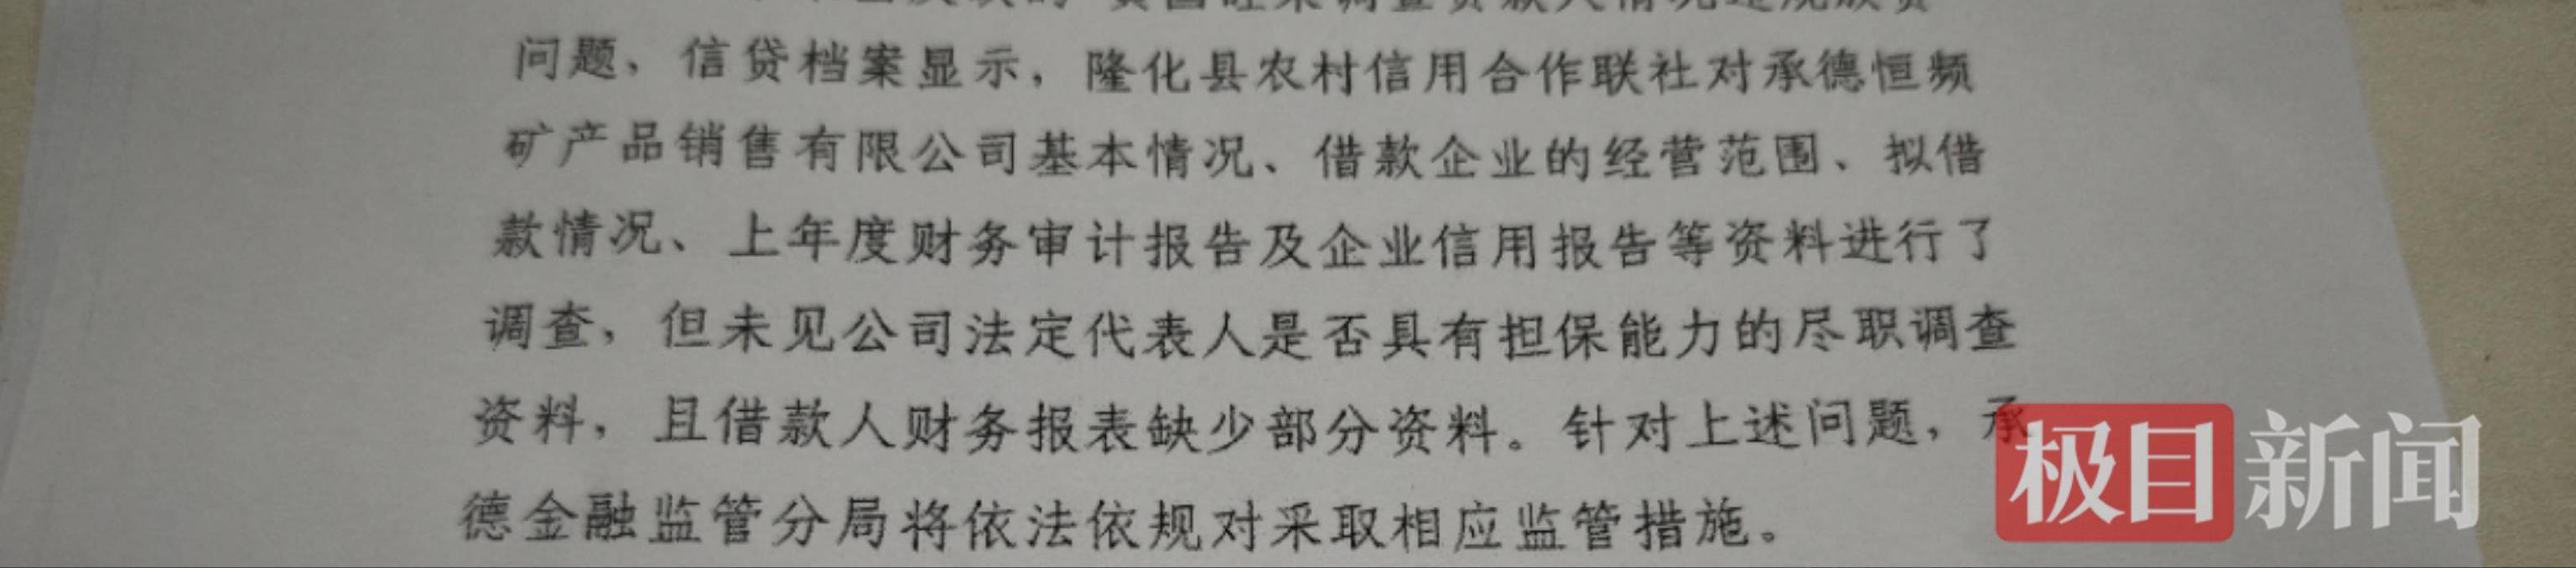 问题、信贷档案显示，隆化县农村信用合作联社对承德恒频
矿产品销售有限公司基本情况、借款企业的经营范围、拟借
款情况、上年度财务审计报告及企业信用报告等资料进行了
调查，但未见公司法定代表人是否具有担保能力的尽职调查
资料，且借款人财务报表缺少部分资料。针对上述问题，承
德金融监管分局将依法依规对采取相应监管措施。
极目新闻